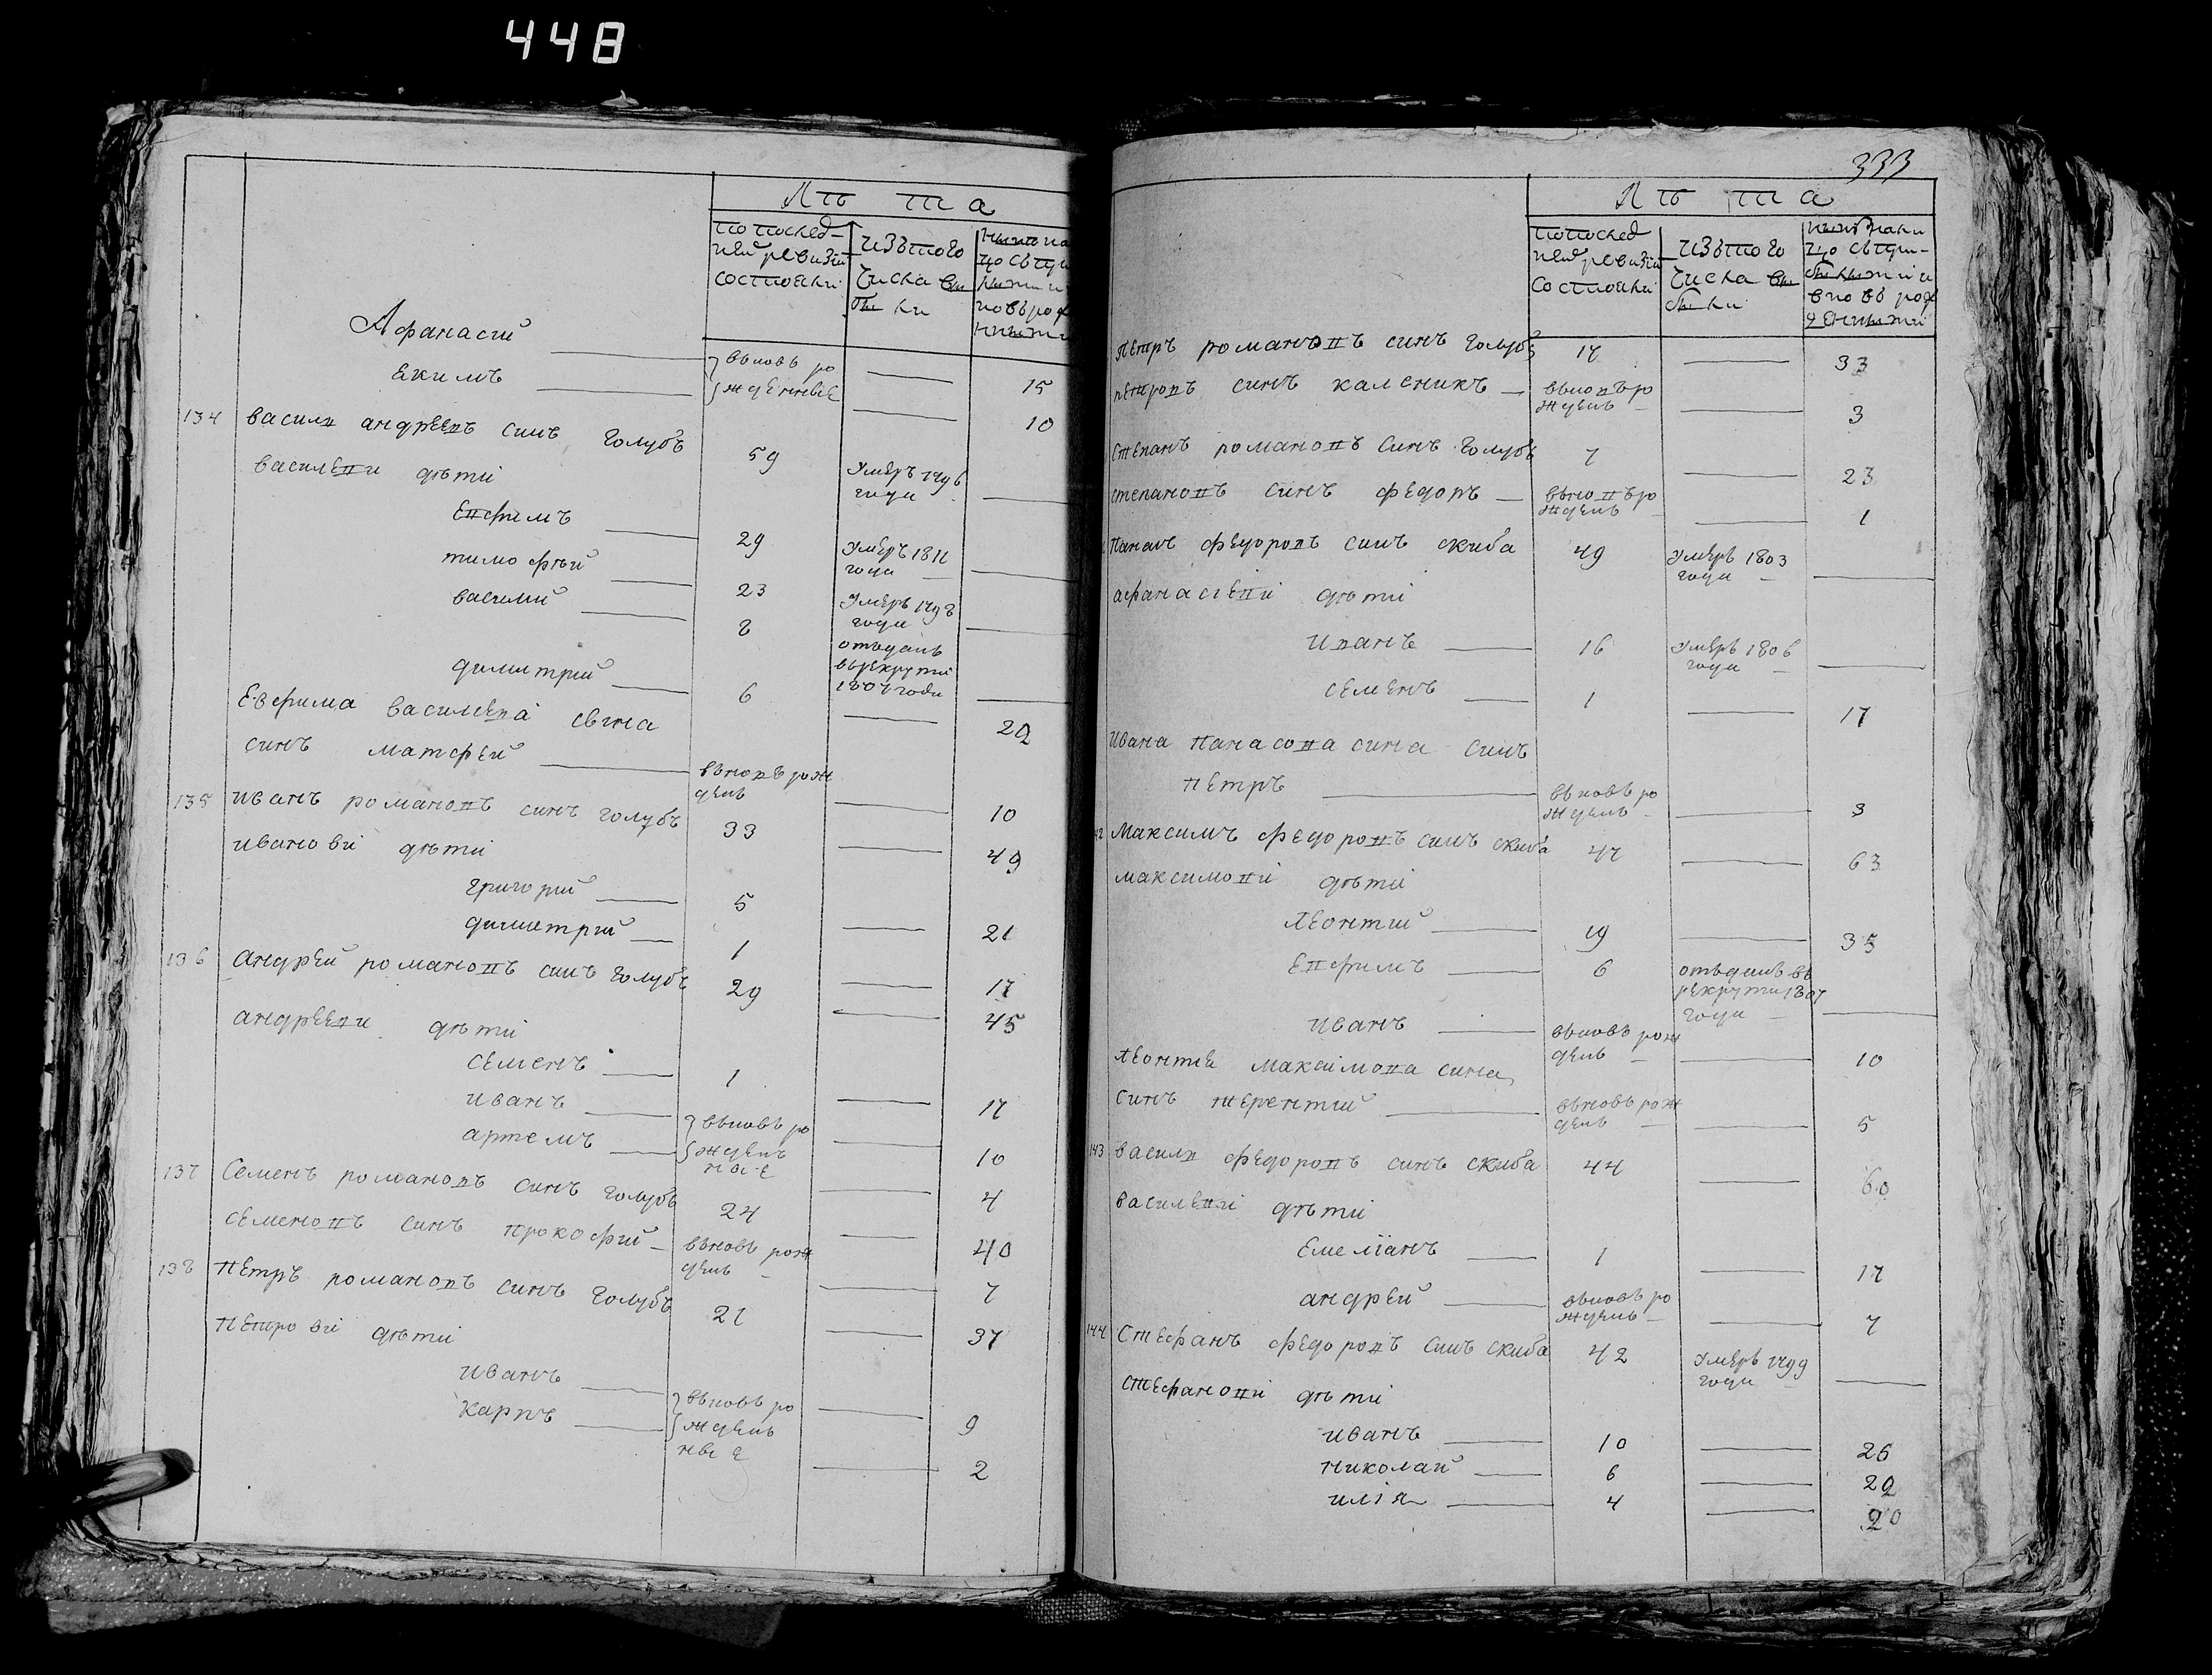 448
Лѣ та
по послед-
ней ревизіи
состояли
изътого
числа вы
бы ло
Афанасий
екимъ
вьновь ро
жденные
15
10
134 василь андреевъ синъ голубъ 59 умеръ 1796
года
василеви дѣти
Евфимъ 29 умеръ 1811
года
тимофѣй 23 умеръ 1798
года
василий 8 отъданъ
врекруты
1807 года
димитрий 6 22
Евфима василева сына
синъ матфей вьновъ рож
денъ 10
135 иванъ романовъ синъ голубъ 33 49
иванови дѣти
григорий 5 21
димитрий 1 17
136 андрей романовъ синъ голубъ 29 45
андрееви дѣти
семенъ 1 17
иванъ вьновь ро 10
артемъ жденъ
ные 4
137 Семенъ романовъ синъ голубъ 24 40
семеновъ синъ прокофий вьновь рож
денъ 7
138 Петръ романовъ синъ голубъ 21 37
Петрові дѣти
иванъ вьновь ро 9
карпъ жденъ
ные 2
333
Лѣ та
по послед
ней ревизіи
состояли
изътого
числа вы
бы ло
Петръ романовъ синъ голубъ 17 33
петровъ синъ каленикъ вьновъ ро
жденъ 3
степанъ романовъ синъ голубъ 7 23
степановъ синъ федоръ вьновъ ро
жденъ 1
Панасъ федоровъ синъ скиба 49 умеръ 1803
года
афанасіеві дѣти
иванъ 16 умеръ 1806
года
семенъ 1 17
Ивана Панасова сина синъ
петръ вьновь ро
жденъ 3
Максимъ федоровъ синъ скиба 47 63
максимові дѣти
Леонтий 19 35
Евфимъ 6 отъданъ въ
рекруты 1807
года
иванъ вьновь рож
денъ 10
Леонтия максимова сина
синъ терентий вьновь рож
денъ 5
143 василь федоровъ синъ скиба 44 60
василеві дѣти
Емеліанъ 1 17
андрей вьновь ро
жденъ 7
144 Стефанъ федоровъ синъ скиба 42 умеръ 1799
года
стефанові дѣти
иванъ 10 26
николай 6 22
илія 4 20